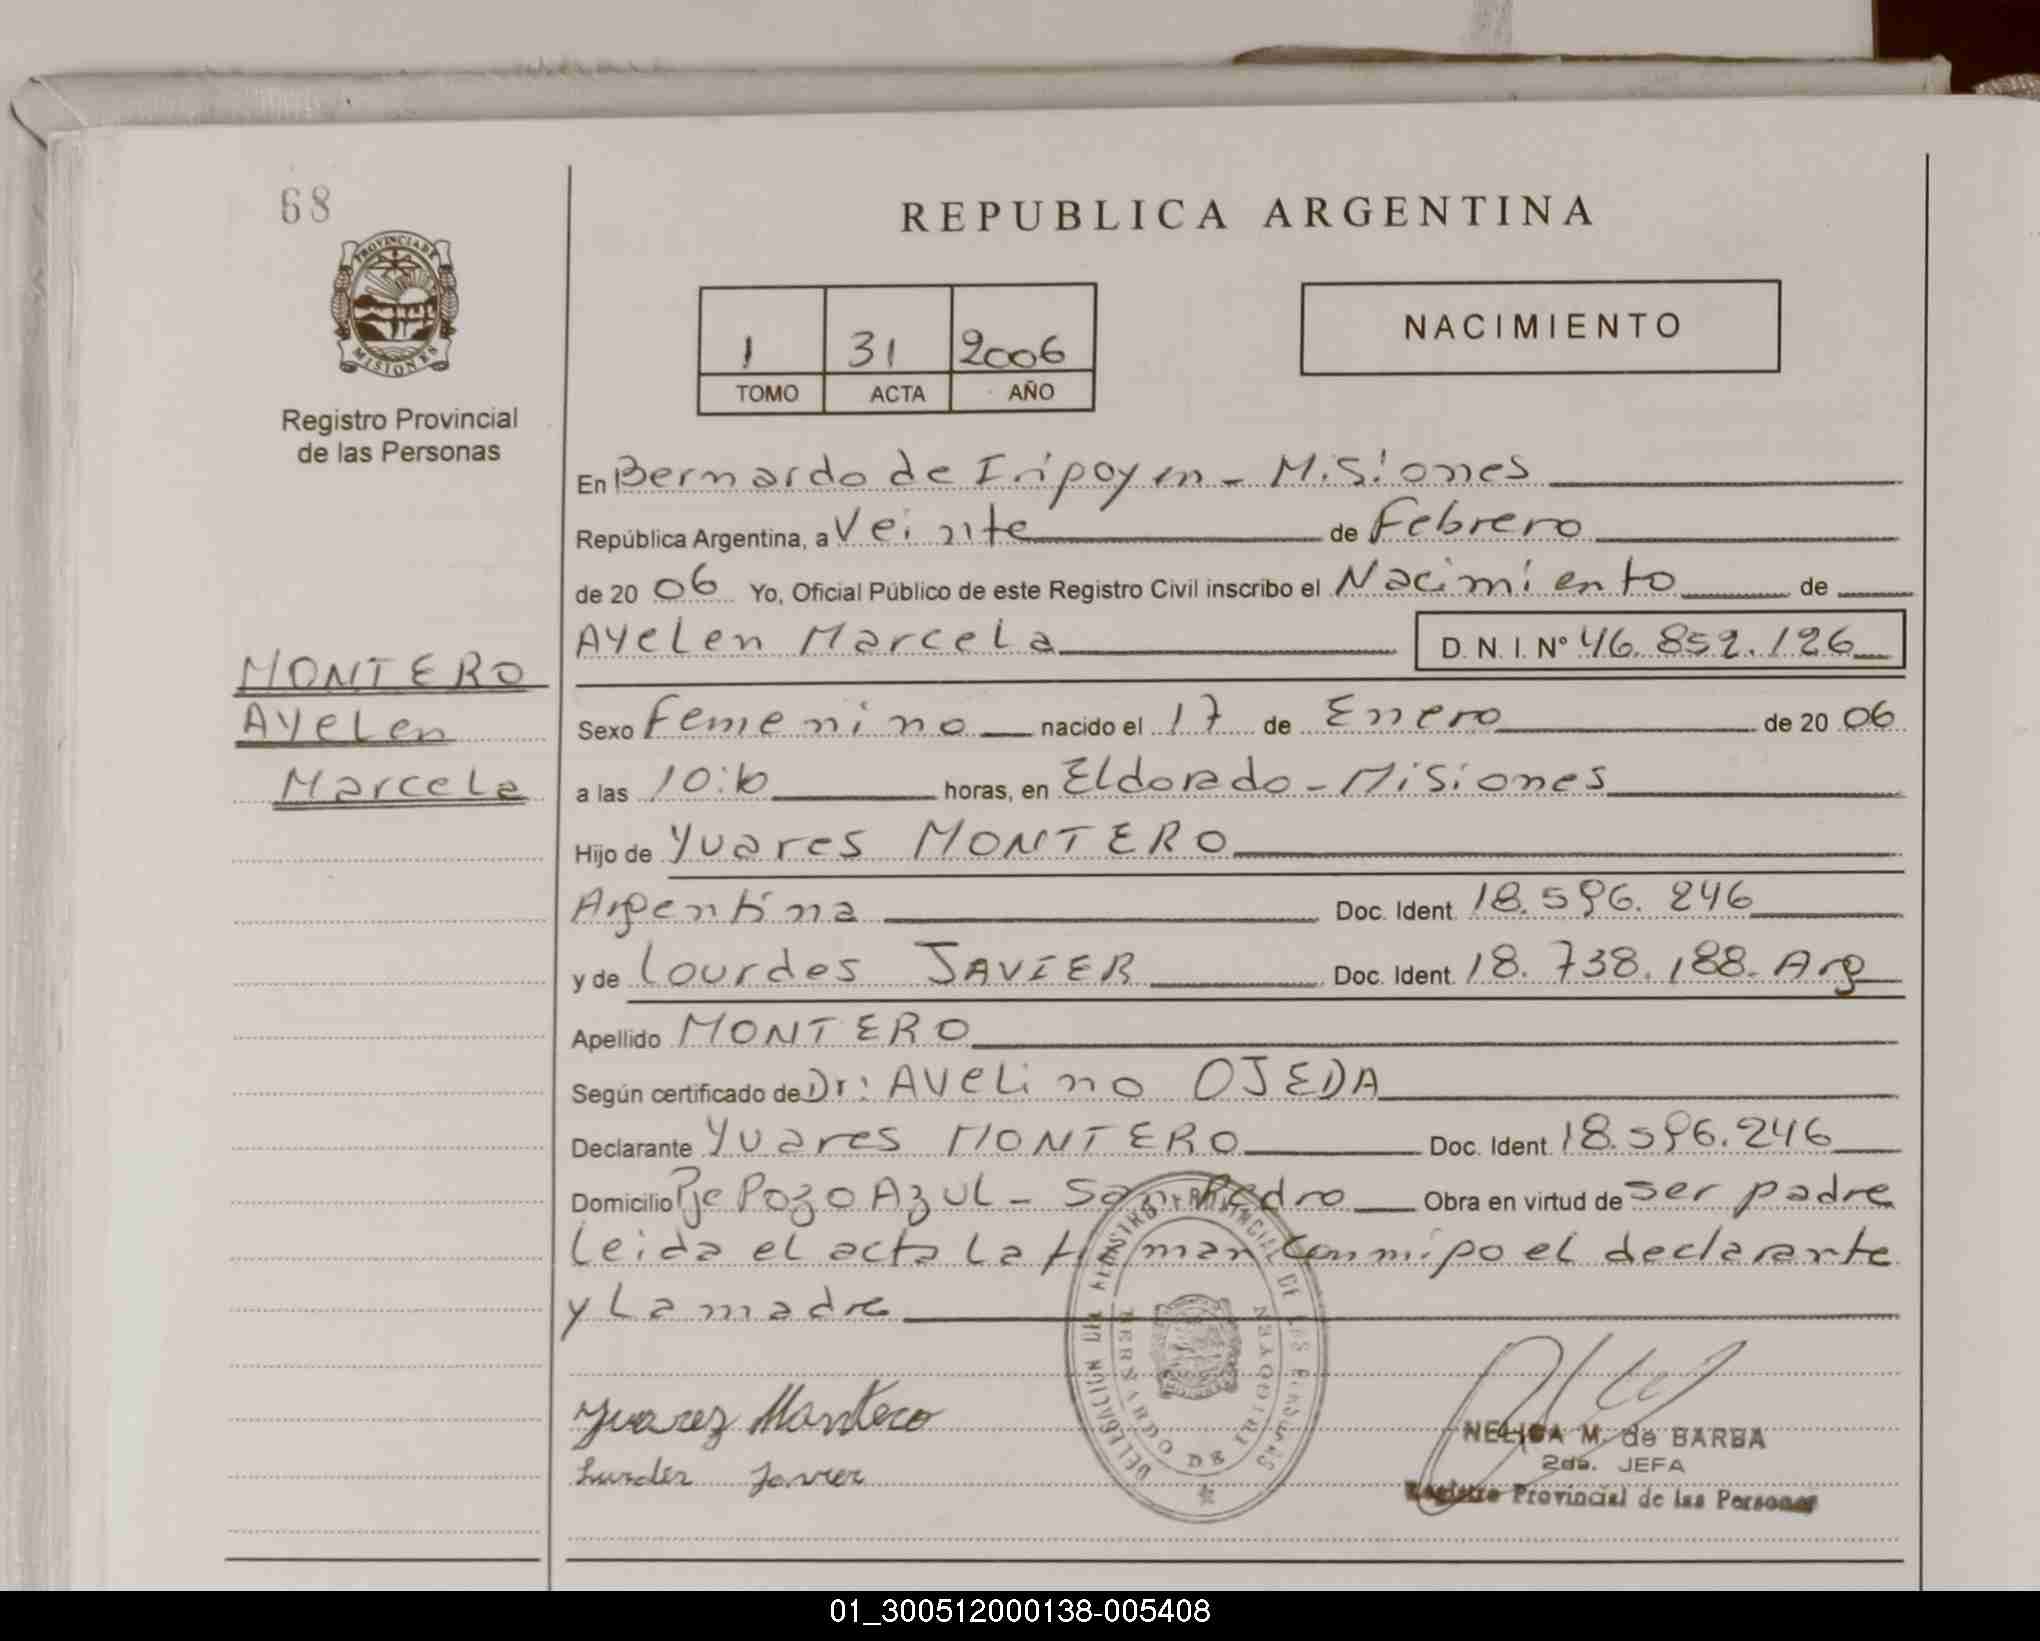 68
REPUBLICA ARGENTINA
PROVINCIA DE
MISIONES
Registro Provincial
de las Personas
1 31 2006
TOMO ACTA AÑO
NACIMIENTO
En Bernardo de Iripoyen - Misiones
República Argentina, a Veinte de Febrero
de 20 06 Yo, Oficial Público de este Registro Civil inscribo el Nacimiento de
Ayelen Marcela D. N. I. Nº 46.852.126
MONTERO
Ayelen
Marcela
Sexo Femenino nacido el 17 de Enero de 20 06
a las horas, en Eldorado - Misiones
Hijo de Yuares MONTERO
Argentina Doc. Ident. 18.596.246
y de Lourdes JAVIER Doc. Ident. 18.738.188. Arg
Apellido MONTERO
Según certificado de Dr: Avelino OJEDA
Declarante Yuares MONTERO Doc. Ident. 18.596.246
Domicilio Pje Pozo Azul - San Pedro Obra en virtud de ser padre
Leida el acta la firman conmigo el declarante
y la madre
Yuarez Montero
Javier
DELEGACION DEL REGISTRO PROVINCIAL DE LAS PERSONAS
BERNARDO DE IRIGOYEN
NELIDA M. de BARBA
2da. JEFA
Registro Provincial de las Personas
01_300512000138-005408